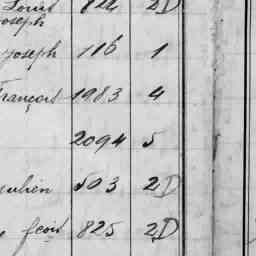 Louis 824 2D
Joseph
Joseph 116 1
François 1983 4
2094 5
Julien 503 2D
fcois 825 2D